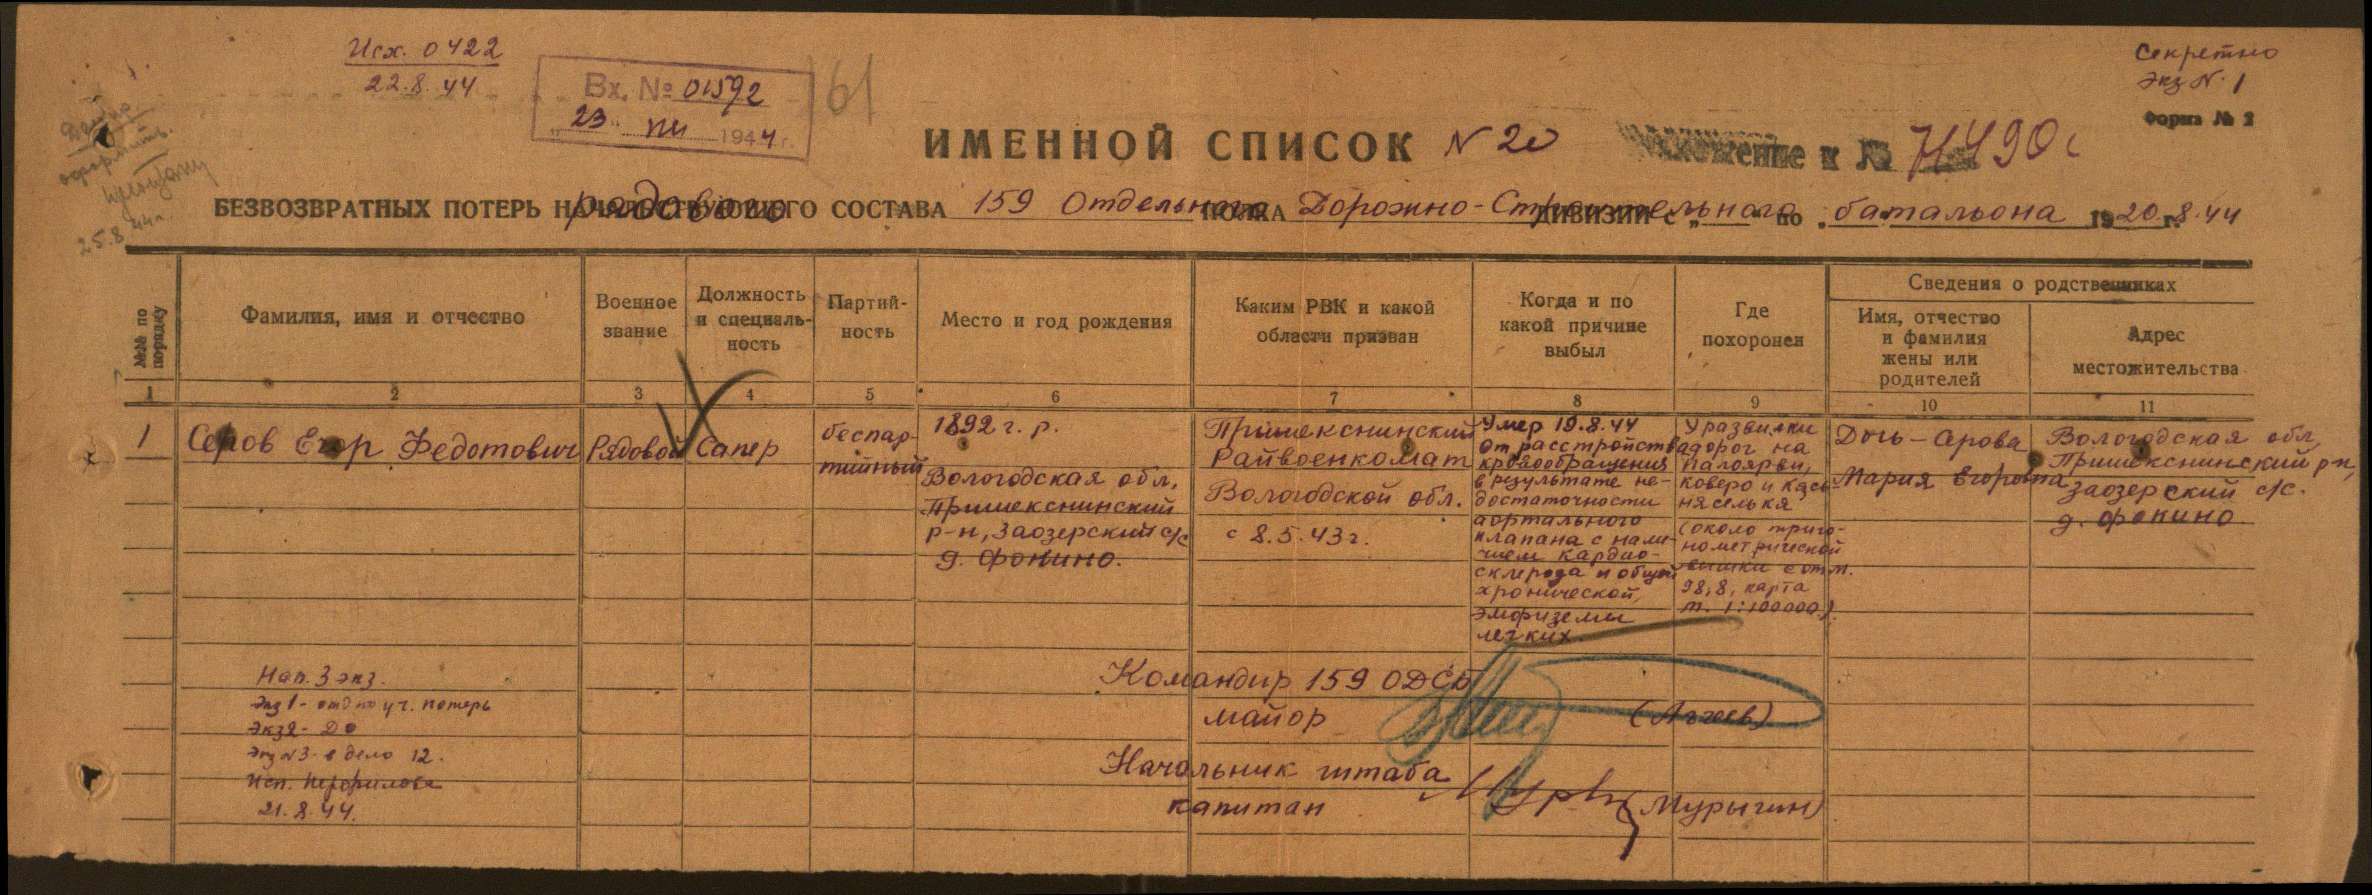 Исх. 0422
22.8.44
Вх. № 01592
"23" VIII 1944 г.
61
Секретно
Экз N. 1
Форма № 2
25.8.44 г.
ИМЕННОЙ СПИСОК N 20
к № 71490с
БЕЗВОЗВРАТНЫХ ПОТЕРЬ рядового СОСТАВА 159 Отдельного ПОЛКА Дорожно-Строительного ДИВИЗИИ с „ “ по батальона 19 20.8.44 г.
№№ по порядку
Фамилия, имя и отчество
Военное звание
Должность и специаль-ность
Партий-ность
Место и год рождения
Каким РВК и какой области призван
Когда и по какой причине выбыл
Где похоронен
Сведения о родственниках
Имя, отчество и фамилия жены или родителей
Адрес местожительства
1 2 3 4 5 6 7 8 9 10 11
1
Серов Егор Федотович
Рядовой
Сапер
беспар-
тийный
1892 г. р.
Вологодская обл,
Пришекснинский
р-н, Заозерский с/с
д. Фонино.
Пришекснинский
Райвоенкомат
Вологодской обл.
с 8.5.43 г.
Умер 19.8.44
от расстройства
кровообращения
в результате не-
достаточности
аортального
клапана с нали-
чием кардио-
склероза и общей
хронической
эмфиземы
легких.
У развилки
дорог на
Палоярви,
Коверо и
няселькя
(около триго-
нометрической
вышки с отм.
98,8, карта
м. 1:100000).
Дочь - Серова
Мария Егоровна
Вологодская обл,
Пришекснинский р-н,
Заозерский с/с.
д. Фонино
Нап. 3 экз.
Экз 1 - отд по уч. потерь
Экз 2 - ДО
Экз N 3 - в дело 12.
Исп.
21.8.44.
Командир 159 ОДСБ
майор (Агеев)
Начальник штаба
капитан (Мурыгин)